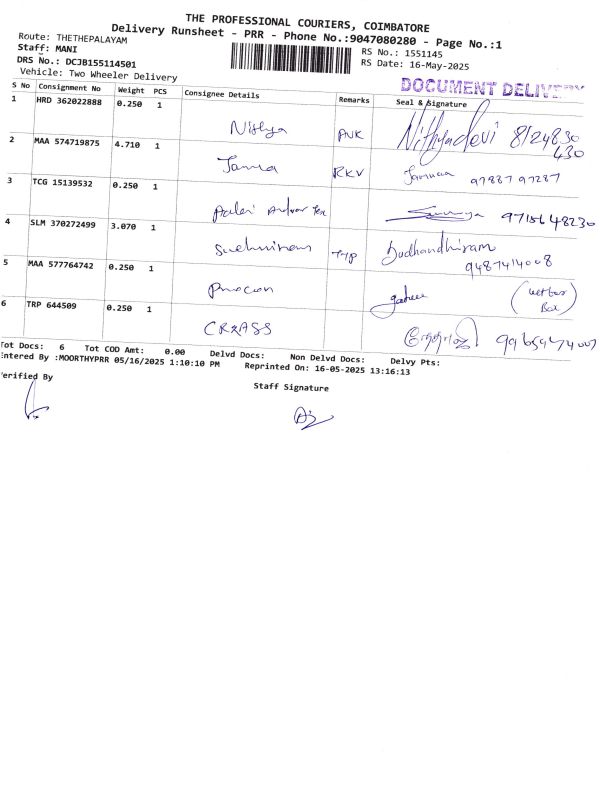 THE PROFESSIONAL COURIERS, COIMBATORE
Delivery Runsheet - PRR - Phone No.:9047080280 - Page No.:1
Route: THETHEPALAYAM
Staff: MANI
DRS No.: DCJB155114501
Vehicle: Two Wheeler Delivery
RS No.: 1551145
RS Date: 16-May-2025
DOCUMENT DELIVERY
S No Consignment No Weight PCS Consignee Details Remarks Seal & Signature
1 HRD 362022888 0.250 1 Nithya PNK Nithyadevi 8124830
430
2 MAA 574719875 4.710 1 RKV 97887 97287
3 TCG 15139532 0.250 1 9715648230
4 SLM 370272499 3.070 1 TYP
9487414008
5 MAA 577764742 0.250 1
6 TRP 644509 0.250 1 CRZASS 9965974007
Tot Docs: 6 Tot COD Amt: 0.00 Delvd Docs: Non Delvd Docs: Delvy Pts:
Entered By :MOORTHYPRR 05/16/2025 1:10:10 PM Reprinted On: 16-05-2025 13:16:13
Verified By
Staff Signature